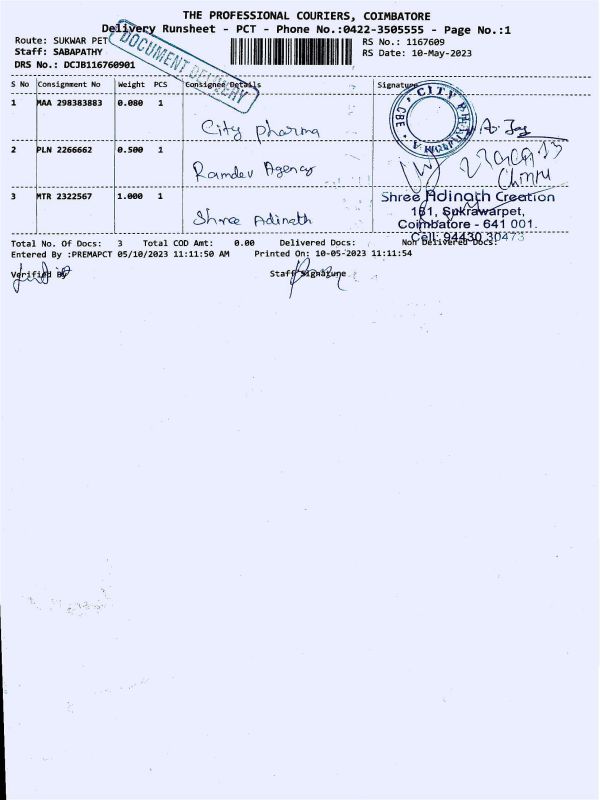 THE PROFESSIONAL COURIERS, COIMBATORE
Delivery Runsheet - PCT - Phone No.:0422-3505555 - Page No.:1
Route: SUKWAR PET
RS No.: 1167609
Staff: SABAPATHY
RS Date: 10-May-2023
DRS No.: DCJB116760901
DOCUMENT DELIVERY
S No Consignment No Weight PCS Consignee Details Signature
1 MAA 298383883 0.080 1
City pharma
CITY PHARMA
CBE
2 PLN 2266662 0.500 1
Ramdev Agency
3 MTR 2322567 1.000 1
Shree Adinath
Shree Adinath Creation
181, Sukrawarpet,
Coimbatore - 641 001.
Cell: 94430 30473
Total No. Of Docs: 3 Total COD Amt: 0.00 Delivered Docs: Non Delivered Docs:
Entered By :PREMAPCT 05/10/2023 11:11:50 AM Printed On: 10-05-2023 11:11:54
Verified By Staff Signature